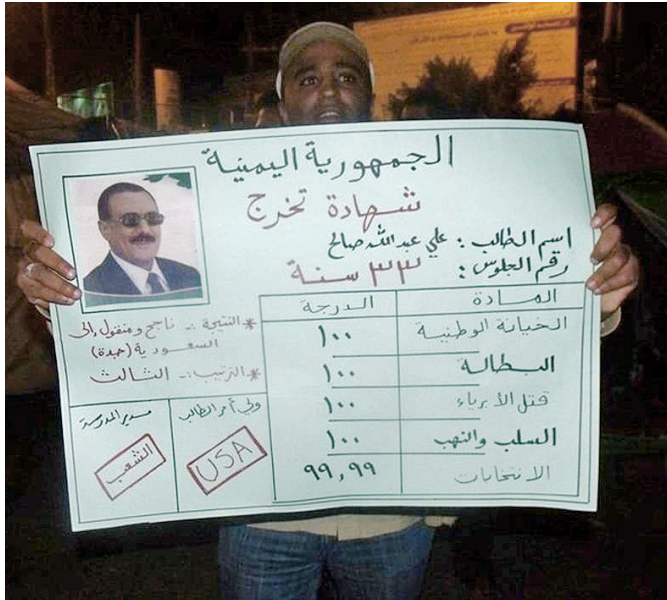 الجمهورية اليمنية
شهادة تخرج
اسم الطالب : علي عبدالله صالح
رقم الجلوس : ٣٣ سنة
المادة الدرجة
الخيانة الوطنية ١٠٠
البطالة ١٠٠
قتل الأبرياء ١٠٠
السلب والنهب ١٠٠
الانتخابات ٩٩,٩٩
* النتيجة :- ناجح ومنقول إلى
السعودية (جدة)
* الترتيب :- الثالث
ولي أمر الطالب
USA
مدير المدرسة
الشعب